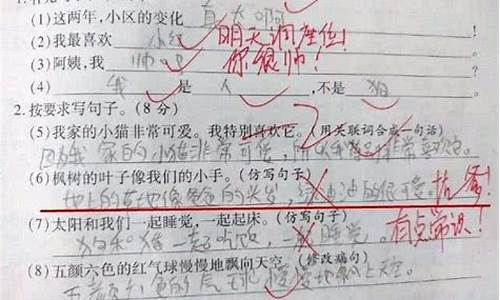 (1)这两年,小区的变化 真大啊
(2)我最喜欢 小红 明天调座位!
(3)阿姨,我 帅吧 你很帅!
(4) 我 是 人 ,不是 狗
2.按要求写句子。(8分)
(5)我家的小猫非常可爱。我特别喜欢它。(用关联词合成一句话)
因为我家的小猫非常可爱,所以我非常喜欢它。
(6)枫树的叶子像我们的小手。(仿写句子)
地上的草地像爸爸的头发,绿油油的很可爱。 抗爹!
(7)太阳和我们一起睡觉,一起起床。(仿写句子)
狗和猪一起吃饭,一起睡觉。 有点常识!
(8)五颜六色的红气球慢慢地飘向天空。(修改病句)
五颜六色的气球慢慢地飘上天空。